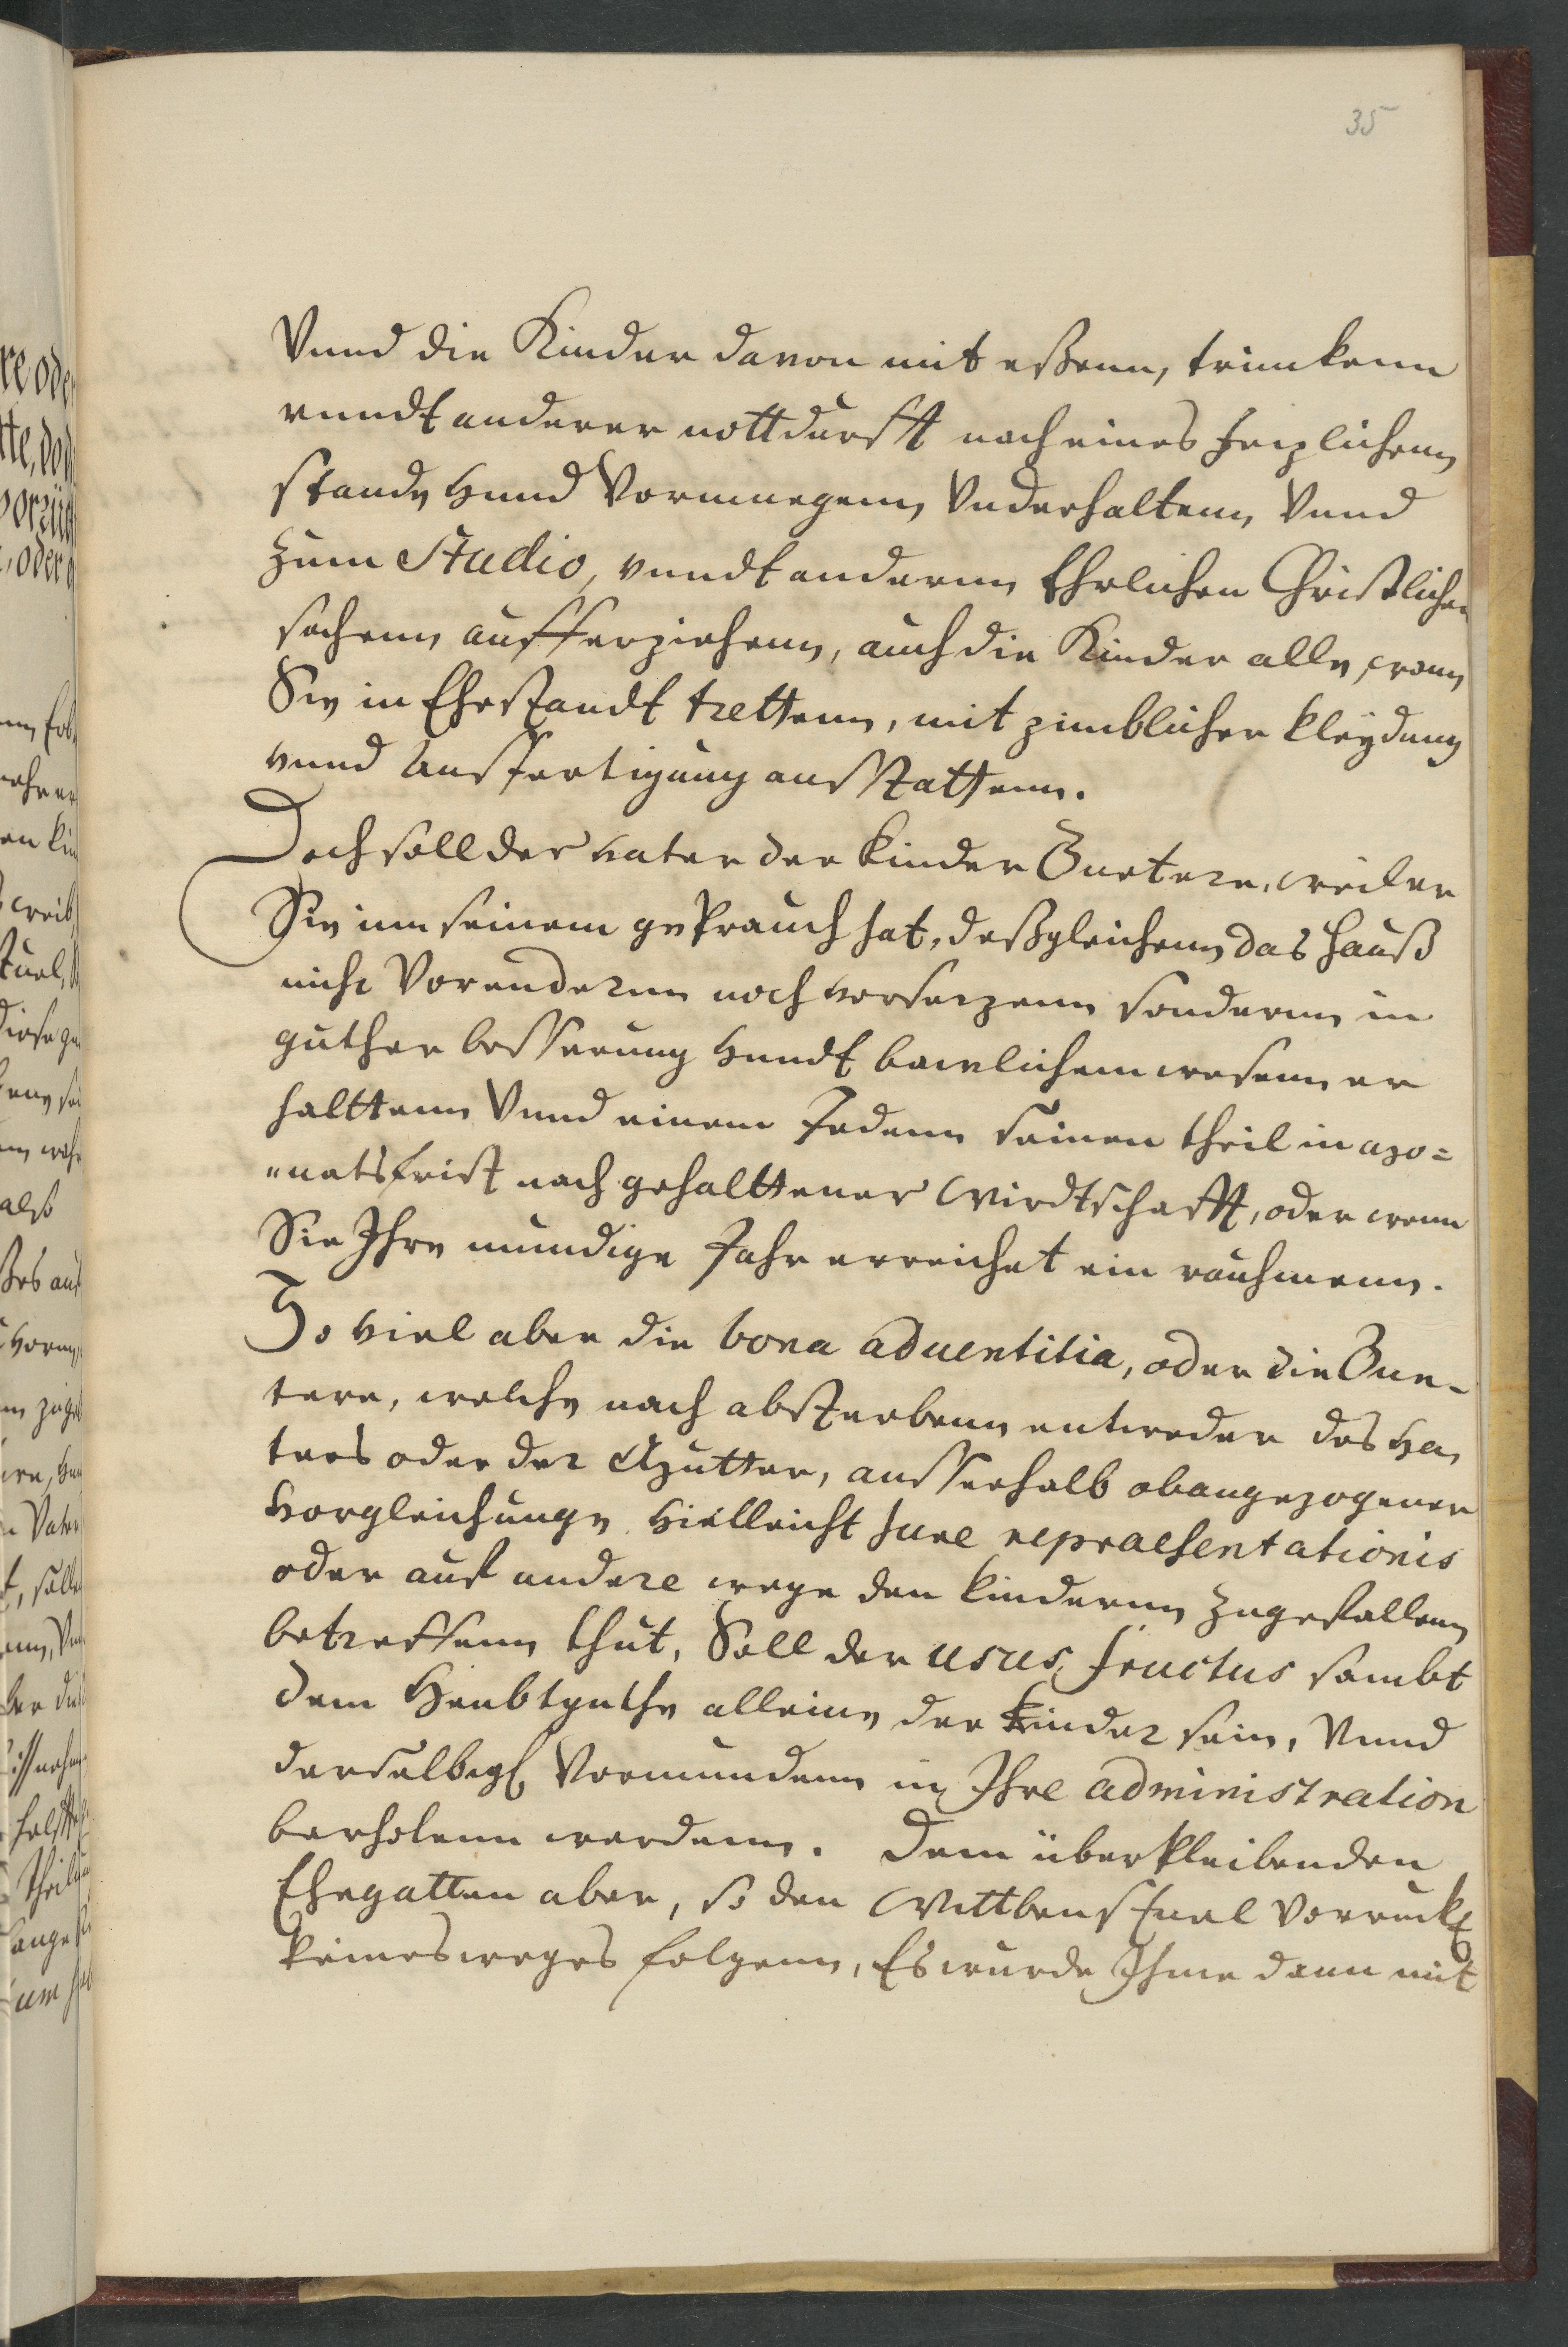 35
Vnnd die Kinder davon mit eßenn, trinnkenn
vnndt anderer nottdurfft nach eines jezlichenn
stande vnnd Vermuegenn, Vnderhaltenn, Vnnd
Zum Studio, vnndt anderenn Ehrlichen Christlichen
sachenn aufferziehenn, auch die Kinder alle, wann
Sie in Ehestandt trettenn, mit zimblicher kleydung
vnnd Ausfertigung ausstattenn.
Doch soll der vater der kinder Guetere, weil er
Sie inn seinem geprauch hat, deßgleichenn das hauß
nicht Vorenderenn noch vorsetzenn sonderenn in
guther besserung vnndt bawlichem wesenn er
halttenn Vnnd einem Jedenn seinen theil in Mo=
natsfrist nach gehalttener Wirdtschafft, oder wenn
Sie Ihre mundige Jahr erreichet ein rauhmenn.
So viel aber die bona aduentitia, oder die Gue-
tere, welche nach absterbenn entweder des va,
ters oder der Mutter, ausserhalb obangezogener
vorgleichunge vielleicht Jure repraesentationis
oder auf andere wege den kinderenn zugefallenn
betreffenn thut, Soll der usus fructus sambt
dem Heubtguthe alleine der kinder sein, Vnnd
derselbigen Vormundenn in Ihre administration
beuholenn werdenn. Dem überpleibenden
Ehegatten aber, so den Wittbenstuel Vorruckt
keinesweges folgenn, Es wurde Ihme dann mit